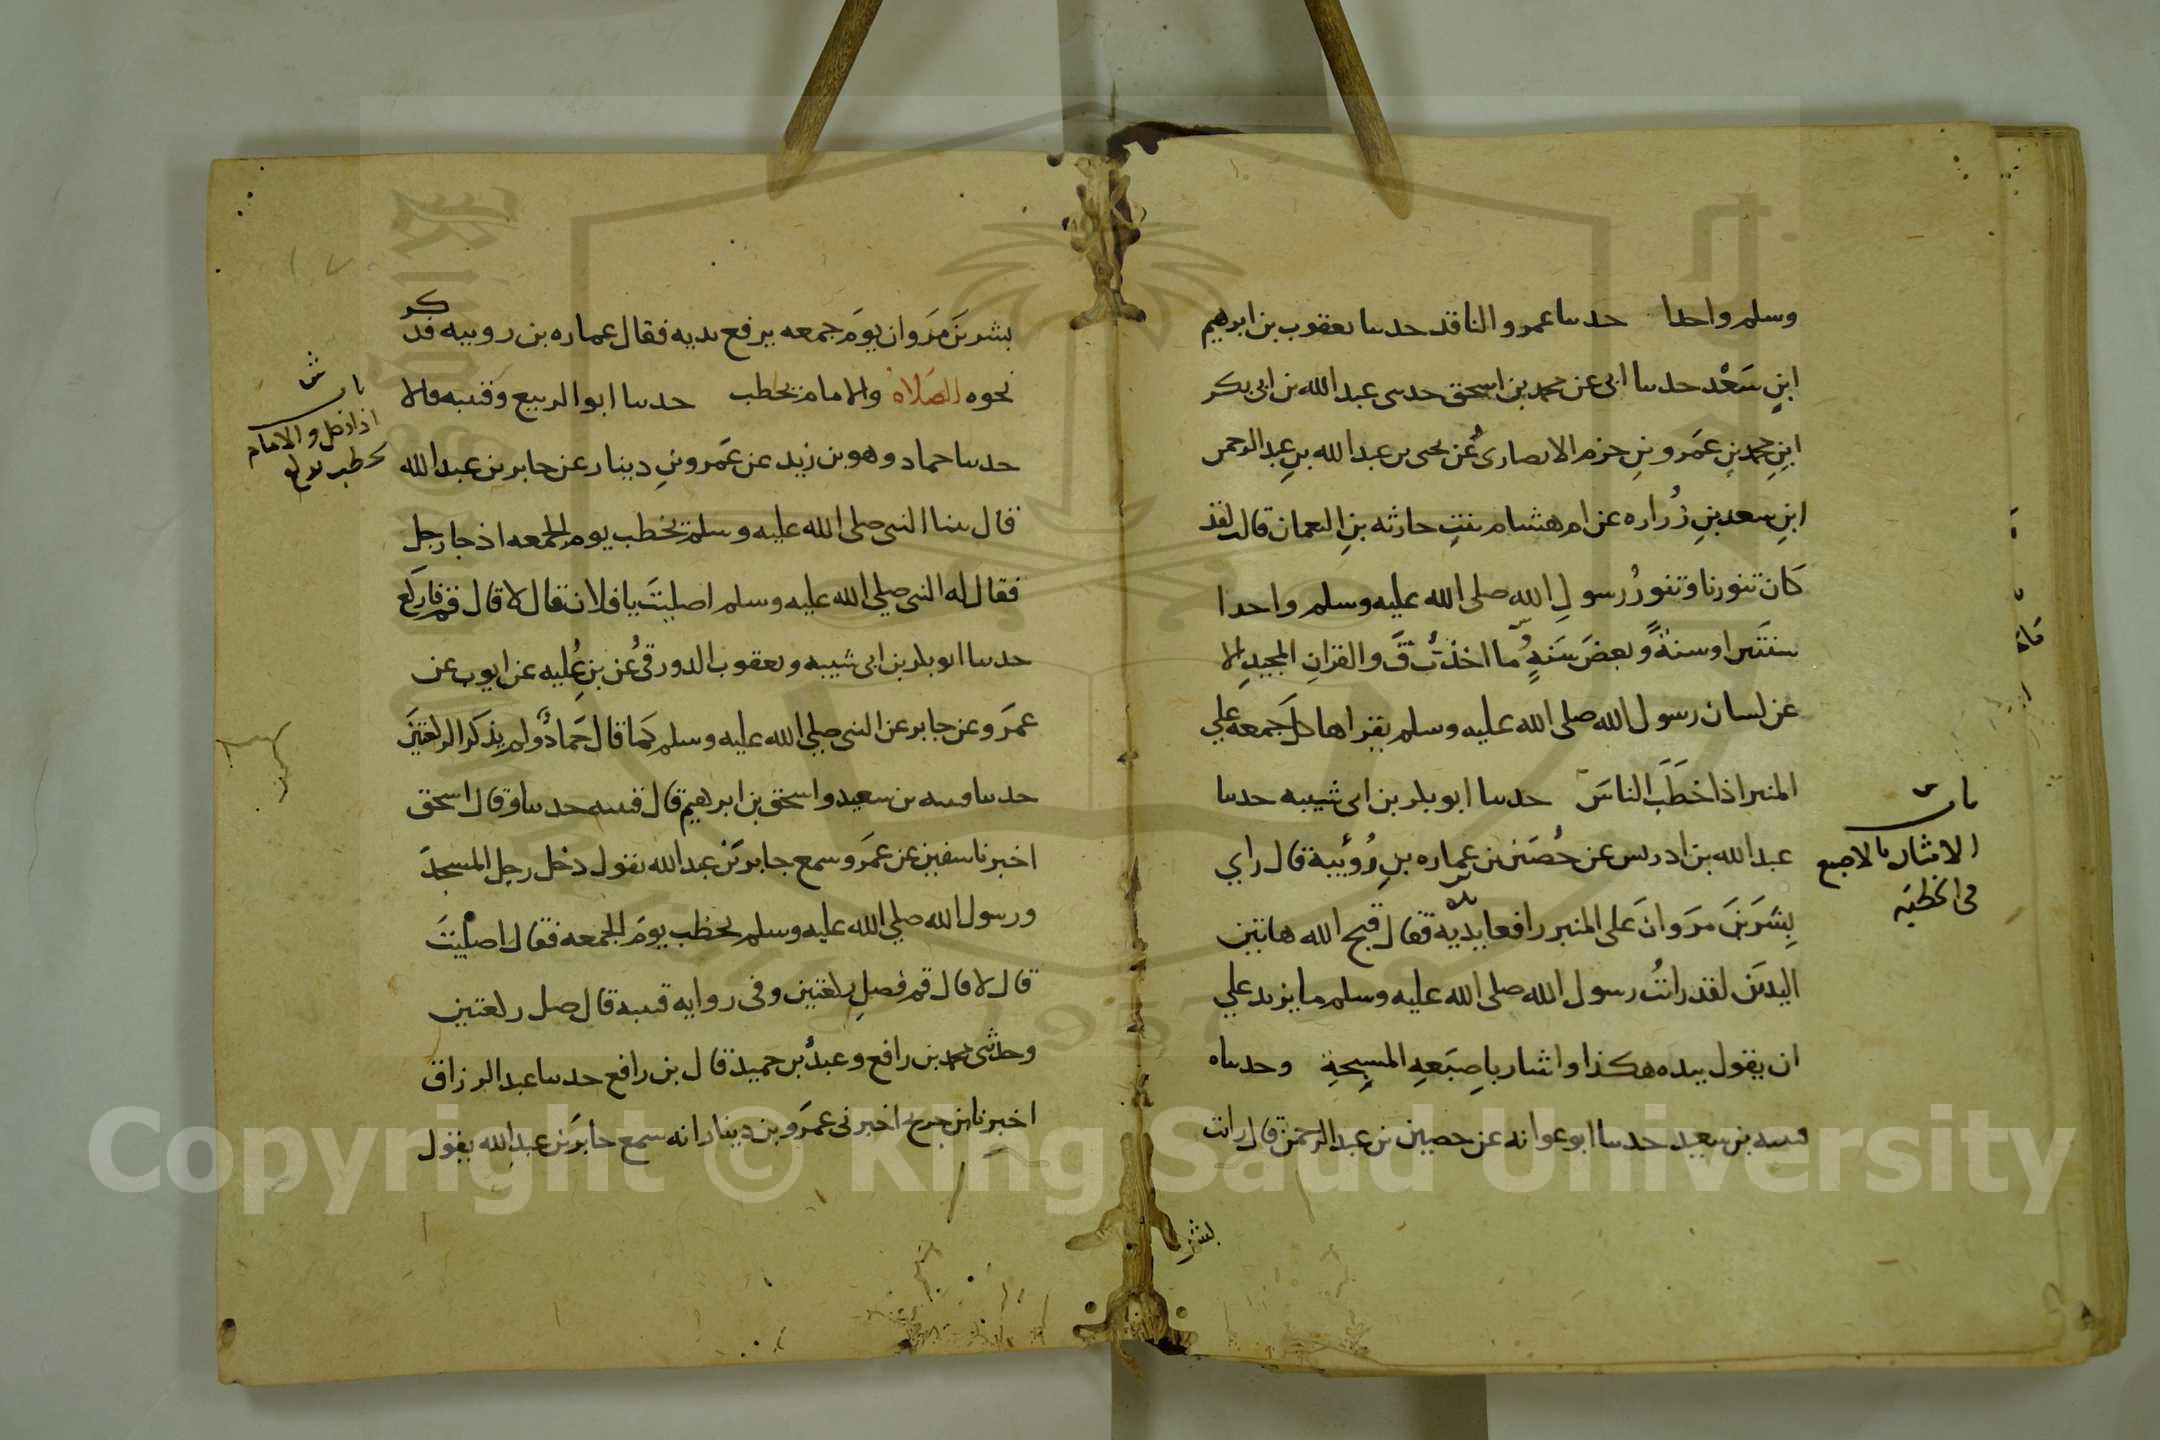 وسلم واحدا حدثنا عمرو الناقد حدثنا يعقوب بن ابرهيم
ابنِ سَعْد حدثنا ابى عن محمد بن اسحق حدثنى عبد الله بن ابى بكر
ابنِ محمد بنِ عَمَرو بنِ حزم الانصارى عن يحيى بن عبد الله بنِ عبد الرحمن
ابنِ سعد بنِ زُراره عن ام هشام بنتِ حارثه بنِ النعمان قالت لقد
كَان تنورنا وتنورُ رسولِ الله صلى الله عليه وسلم واحدا
سنتَين او سنةً وبعضَ سَنَهٍ وما اخذتُ قَ والقرانِ المجيدِ الا
عن لسان رسول الله صلى الله عليه وسلم يقراها كل جمعه على
المنبر اذا خطَبَ الناسَ حدثنا ابو بكر بن ابى شيبه حدثنا
عبد الله بن ادريس عن حُصَين عن عماره بنِ رُوَيبة قال راي
بِشرَ بنَ مرَوانَ على المنبر رافعا يديه فقال قبح الله هاتين
اليدين لقد رايتُ رسول الله صلى الله عليه وسلم ما يزيد علي
ان يقول بيده هكذا واشار باصِبَعهِ المسبحِةِ وحدثناه
قتيبه بن سعيد حدثنا ابو عوانه عن حصين بن عبد الرحمن قال رايت
باب
الاشاره بالاصبع
فى الخطبه
بشر
بشر بنَ مَرَوان يومَ جمعه يرفع يديه فقال عماره بن رويبه فذكر
نحوه الصلاه والامام يخطب حدثنا ابو الربيع وقتيبه قالا
حدثنا حماد وهو بن زيد عن عَمَرو بنِ دينار عن جابر بن عبد الله
قال بينا النبى صلى الله عليه وسلم يخطب يوم الجمعه اذ جا رجل
فقال له النبى صلي الله عليه وسلم اصليتَ يا فلان قال لا قال قم فاركَع
حدثنا ابو بكر بن ابى شيبه ويعقوب الدورقى عن بنِ عُليه عن ايوب عن
عمَرو عن جابر عن النبى صلي الله عليه وسلم كَما قال حَماد ولم يذكَر الركعتَين
حدثنا قتيبه بن سعيد واسحق بن ابرهيم قال قتيبه حدثنا وقال اسحق
اخبرنا سفين عن عمَرو سمع جابر بنَ عبد الله يقول دخل رجل المسجدَ
ورسول الله صلي الله عليه وسلم يخطب يومَ الجمعه فقال اصليتَ
قال لا قال قم فصلِ ركعتين وفى روايه قتيبه قال صل ركعتين
وحدثنى محمد بن رافع وعبدُ بن حميد قال بن رافع حدثنا عبد الرزاق
اخبرنا بن جريج اخبرنى عمَرو بن دينار انه سمع جابرَ بن عبد الله يقول
باب
اذا دخل والامام
يخطب يركع
Copyright © King Saud University